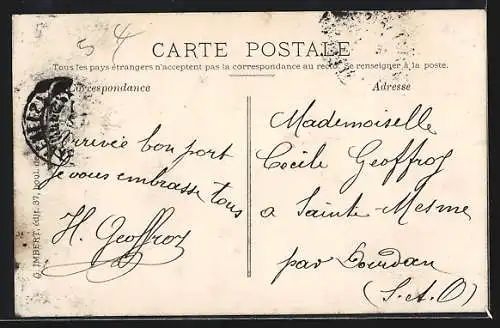 54
CARTE POSTALE
Tous les pays étrangers n'acceptent pas la correspondance au recto. Se renseigner à la poste.
Correspondance
Adresse
Arrivée bon port
je vous embrasse tous
H. Geoffroy
Mademoiselle
Cécile Geoffroy
a Sainte-Mesme
par Dourdan
(S.-et-O)
G. IMBERT, édit. 37, boul. de